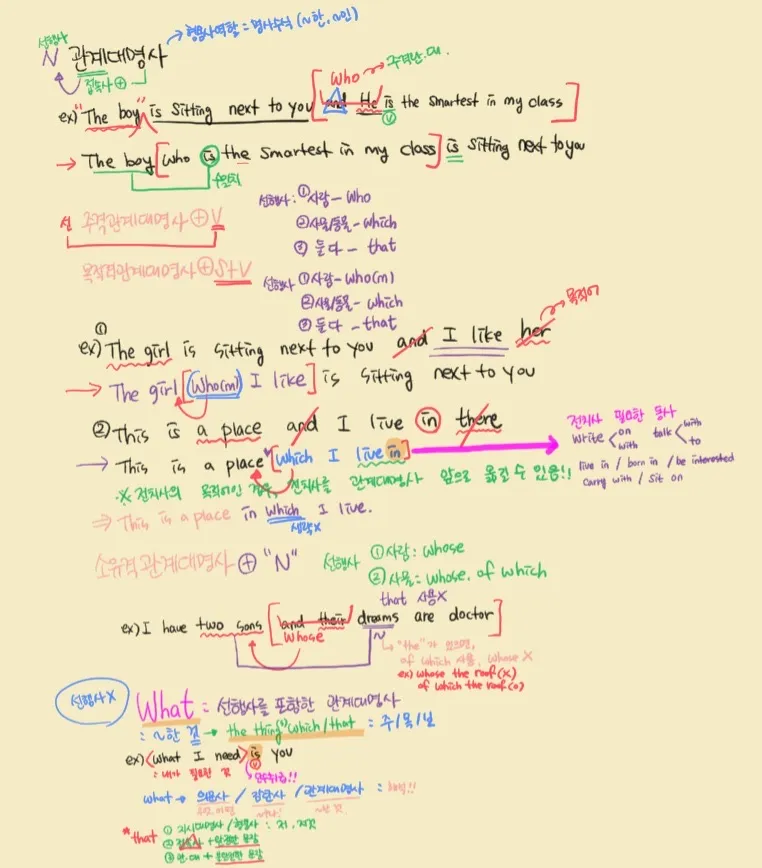 선행사
→ 형용사역할 = 명사수식 (~한, ~인)
N 관계대명사
접속사 ⊕
Who → 주격관.대.
ex) "The boy" is sitting next to you [and He is the smartest in my class]
Ⓥ
→ The boy [who is the smartest in my class] is sitting next to you
수일치
선행사: ① 사람 - who
선 주격관계대명사 ⊕ V
② 사물/동물 - which
③ 둘 다 - that
목적격관계대명사 ⊕ S+V
선행사 ① 사람 - who(m)
② 사물/동물 - which
③ 둘 다 - that
→ 목적어
①
ex) The girl is sitting next to you and I like her
→ The girl [(Who(m)) I like] is sitting next to you
② This is a place and I live in there
전치사 필요한 동사
write < on with talk < with to
→ This is a place [which I live in]
live in / born in / be interested
carry with / sit on
※ 전치사의 목적어인 경우, 전치사를 관계대명사 앞으로 옮길 수 있음!!
⇒ This is a place in which I live.
생략X
소유격관계대명사 ⊕ "N"
선행사 ① 사람: whose
② 사물: whose, of which
that 사용X
ex) I have two sons [and their dreams are doctor]
whose
N
→ "the"가 있으면,
of which 사용, whose X
ex) whose the roof (X)
of which the roof (O)
선행사X
What : 선행사를 포함한 관계대명사
: ~한 것 → the thing(s) which/that : 주/목/보
ex) <What I need> is you
Ⓥ
: 내가 필요한 것
단수취급!!
what → 의문사 / 감탄사 / 관계대명사 : 해석!!
~한 것
*that ① 지시대명사/형용사 : 저, 저것
② 접속사 + 완전한 문장
③ 관.대 + 불완전한 문장